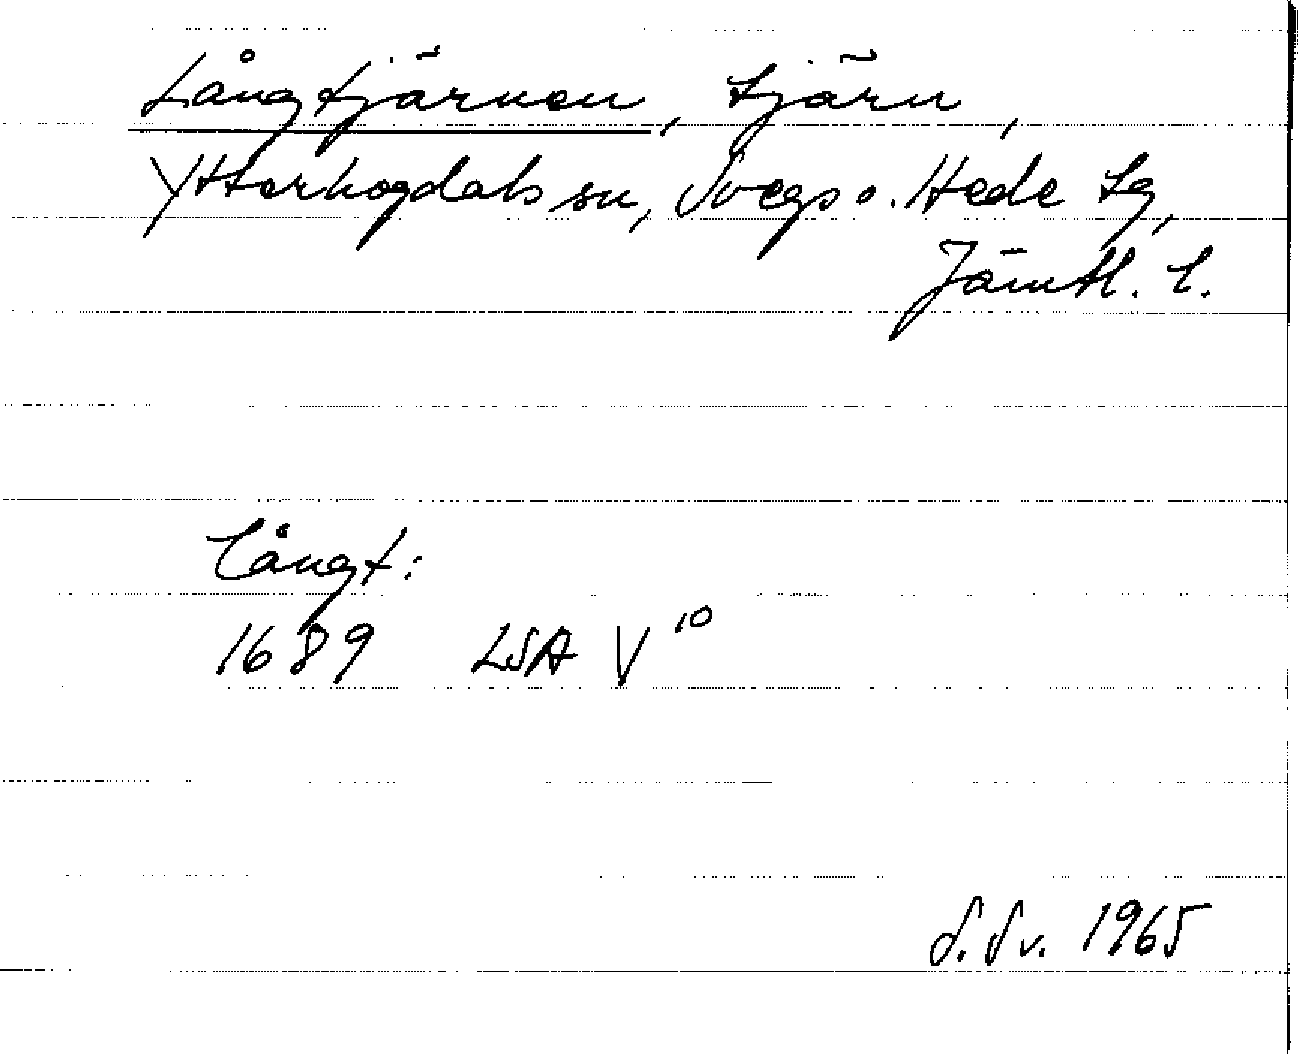 Långtjärnen, tjärn,
Ytterhogdals sn, Svegs o. Hede tg,
Jämtl. l.
Långt:
1689 LSA V¹⁰
S. Sv. 1965